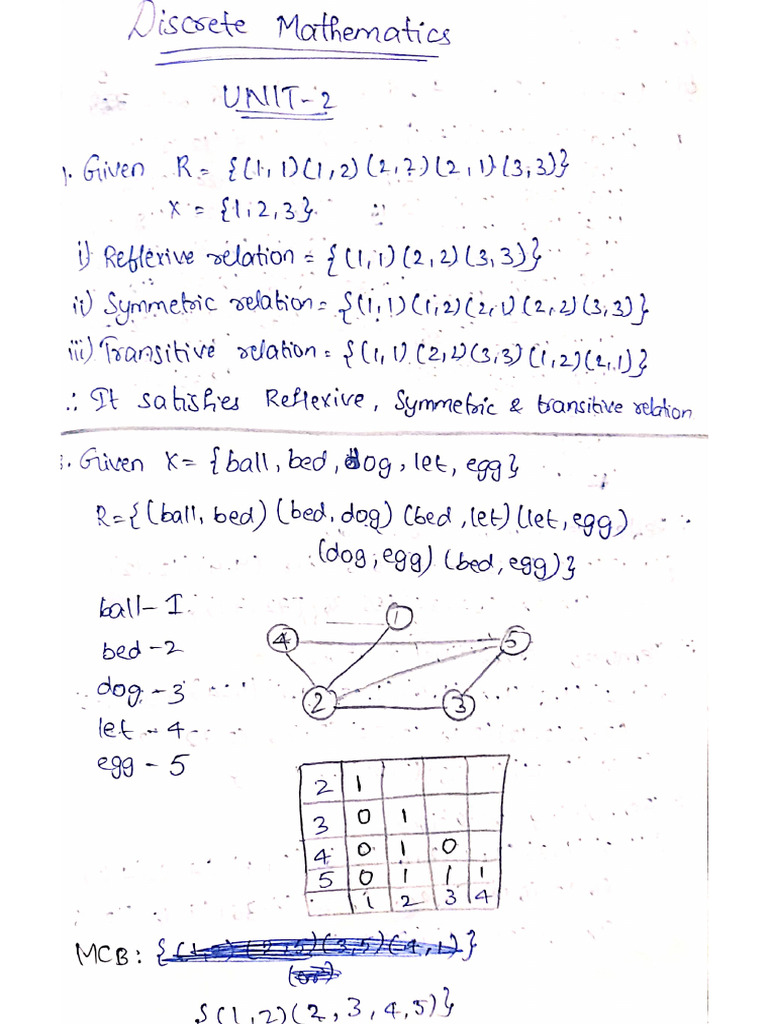 Discrete Mathematics
UNIT-2
1. Given R = {(1,1)(1,2)(2,2)(2,1)(3,3)}
X = {1,2,3}
i) Reflexive relation = {(1,1)(2,2)(3,3)}
ii) Symmetric relation = {(1,1)(1,2)(2,1)(2,2)(3,3)}
iii) Transitive relation = {(1,1)(2,2)(3,3)(1,2)(2,1)}
∴ It satisfies Reflexive, Symmetric & transitive relation
Given X = {ball, bed, dog, let, egg}
R = {(ball, bed) (bed, dog) (bed, let) (let, egg)
(dog, egg) (bed, egg)}
ball - 1
bed - 2
dog - 3
let - 4
egg - 5
1
4 5
2 3
2 1
3 0 1
4 0 1 0
5 0 1 1 1
1 2 3 4
MCB: { }
{(1,2)(2,3,4,5)}